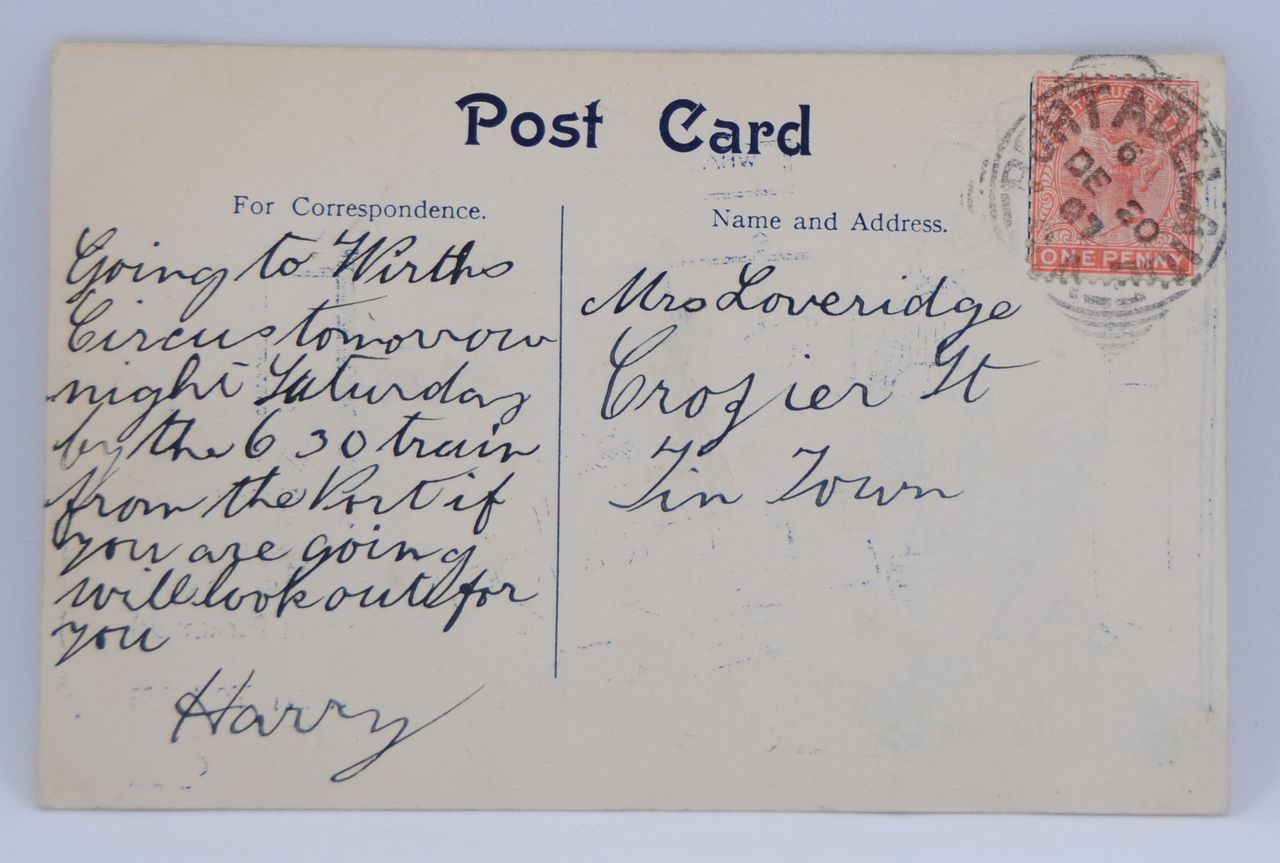 Post Card
For Correspondence.
Going to Wirths
Circus tomorrow
night Saturday
by the 6 30 train
from the Port if
you are going
will look out for
you
Harry
Name and Address.
Mrs Loveridge
Crozier St
Tin Town
SOUTH AUSTRALIA
ONE PENNY
PORT ADELAIDE
6
DE 20
07